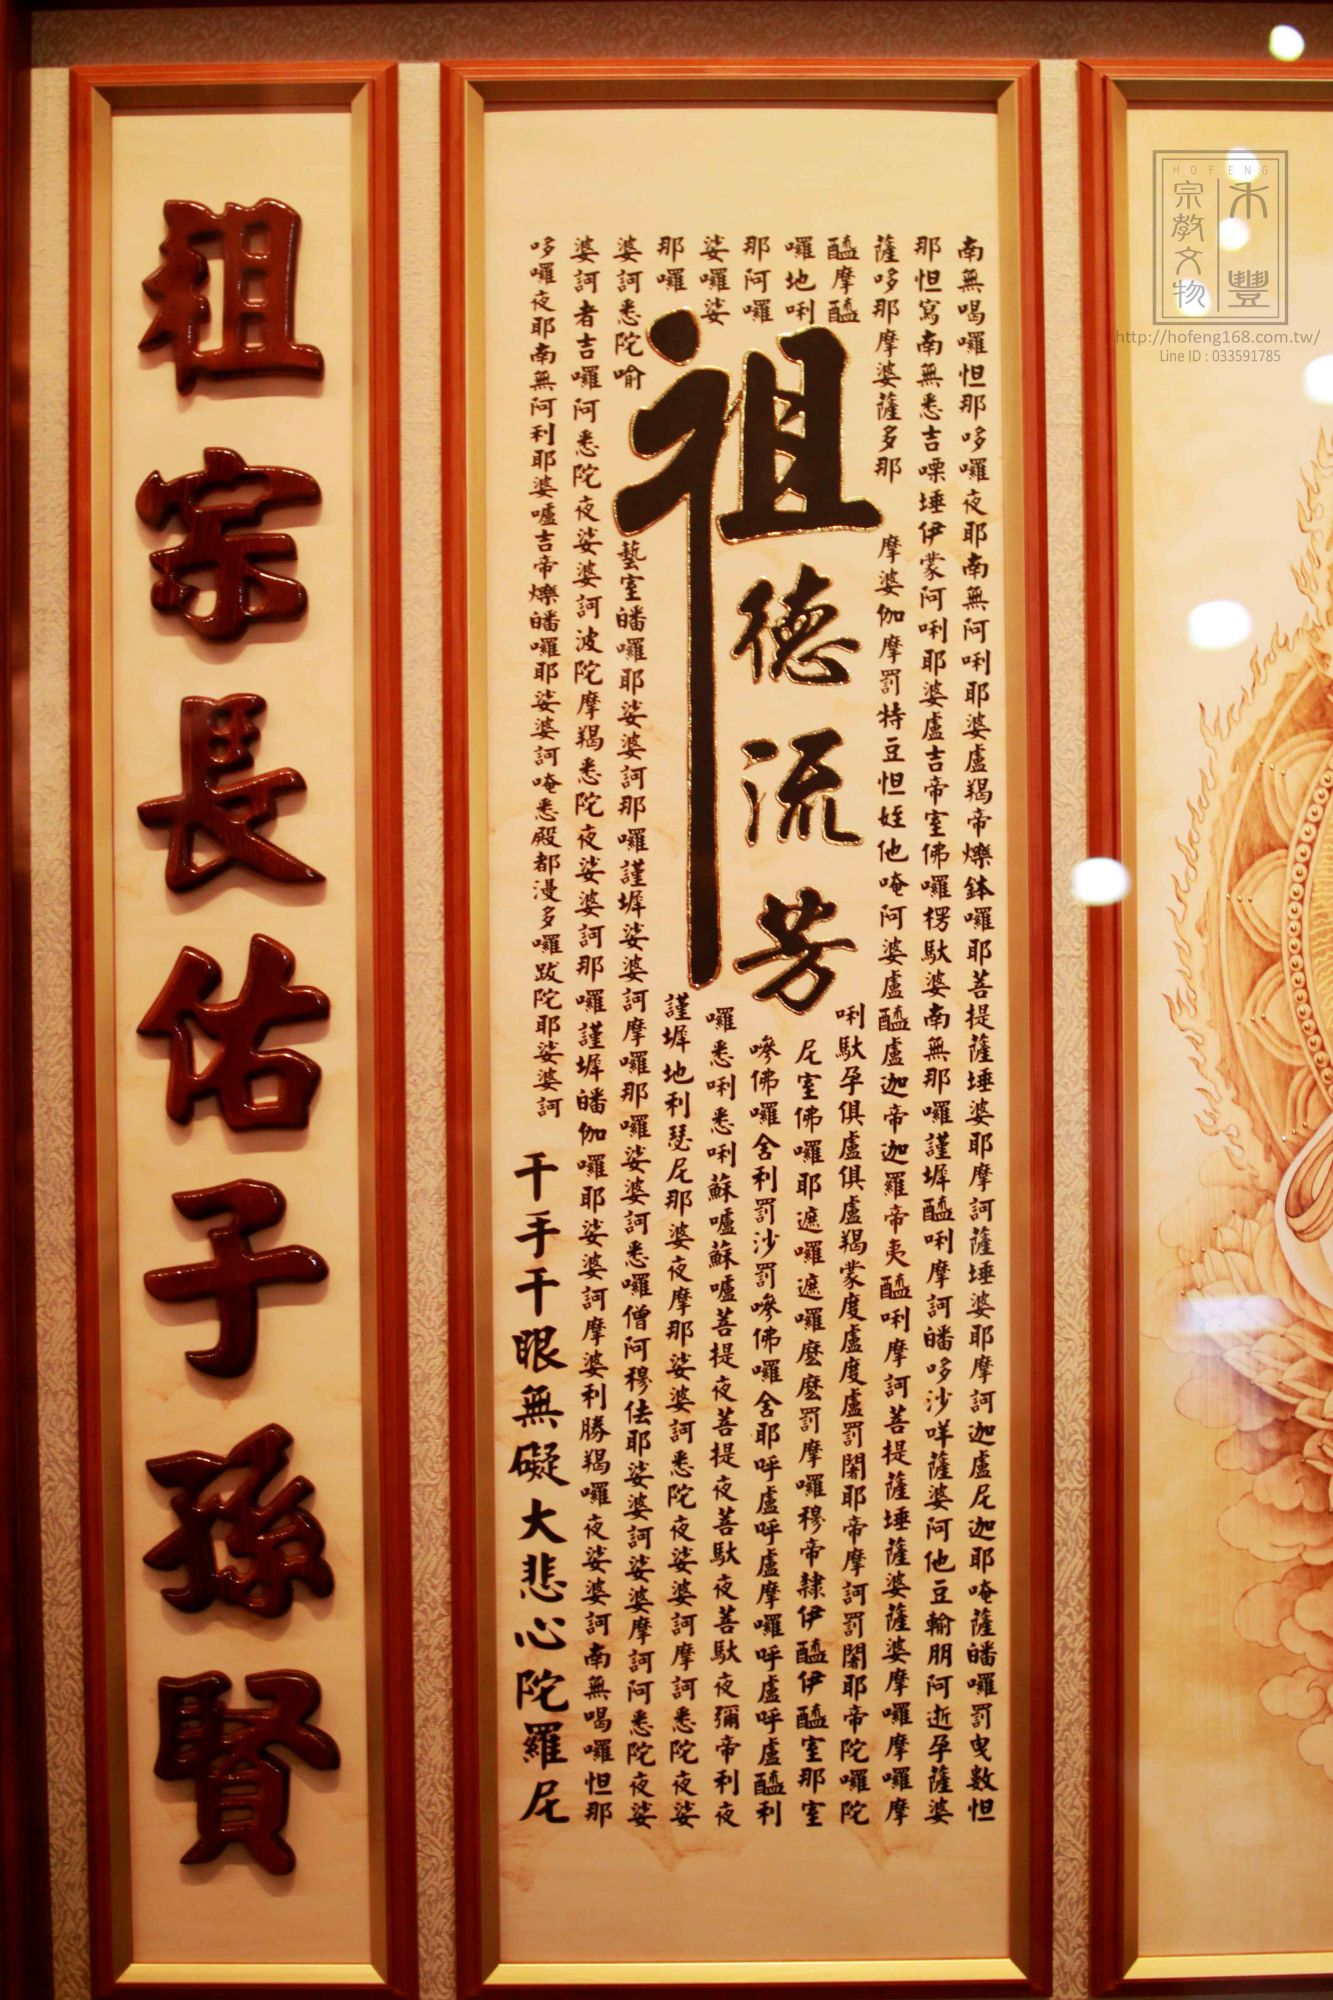 HOFENG
禾豐
宗教文物
http://hofeng168.com.tw/
Line ID : 033591785
南無喝囉怛那哆囉夜耶南無阿唎耶婆盧羯帝爍鉢囉耶菩提薩埵婆耶摩訶薩埵婆耶摩訶迦盧尼迦耶唵薩皤囉罰曳數怛
那怛寫南無悉吉嘌埵伊蒙阿唎耶婆盧吉帝室佛囉楞馱婆南無那囉謹墀醯唎摩訶皤哆沙咩薩婆阿他豆輸朋阿逝孕薩婆
薩哆那摩婆薩多那 摩婆伽摩罰特豆怛姪他唵阿婆盧醯盧迦帝迦羅帝夷醯唎摩訶菩提薩埵薩婆薩婆摩囉摩囉摩
醯摩醯 唎馱孕俱盧俱盧羯蒙度盧度盧罰闍耶帝摩訶罰闍耶帝陀囉陀
囉地唎 尼室佛囉耶遮囉遮囉麼麼罰摩囉穆帝隸伊醯伊醯室那室
那阿囉 嘇佛囉舍利罰沙罰嘇佛囉舍耶呼盧呼盧摩囉呼盧呼盧醯利
娑囉娑 囉悉唎悉唎蘇嚧蘇嚧菩提夜菩提夜菩馱夜菩馱夜彌帝利夜
那囉 謹墀地利瑟尼那婆夜摩那娑婆訶悉陀夜娑婆訶摩訶悉陀夜娑
婆訶悉陀喻 藝室皤囉耶娑婆訶那囉謹墀娑婆訶摩囉那囉娑婆訶悉囉僧阿穆佉耶娑婆訶娑婆摩訶阿悉陀夜娑
婆訶者吉囉阿悉陀夜娑婆訶波陀摩羯悉陀夜娑婆訶那囉謹墀皤伽囉耶娑婆訶摩婆利勝羯囉夜娑婆訶南無喝囉怛那
哆囉夜耶南無阿利耶婆嚧吉帝爍皤囉耶娑婆訶唵悉殿都漫多囉跋陀耶娑婆訶
千手千眼無礙大悲心陀羅尼
祖德流芳
祖宗長佑子孫賢